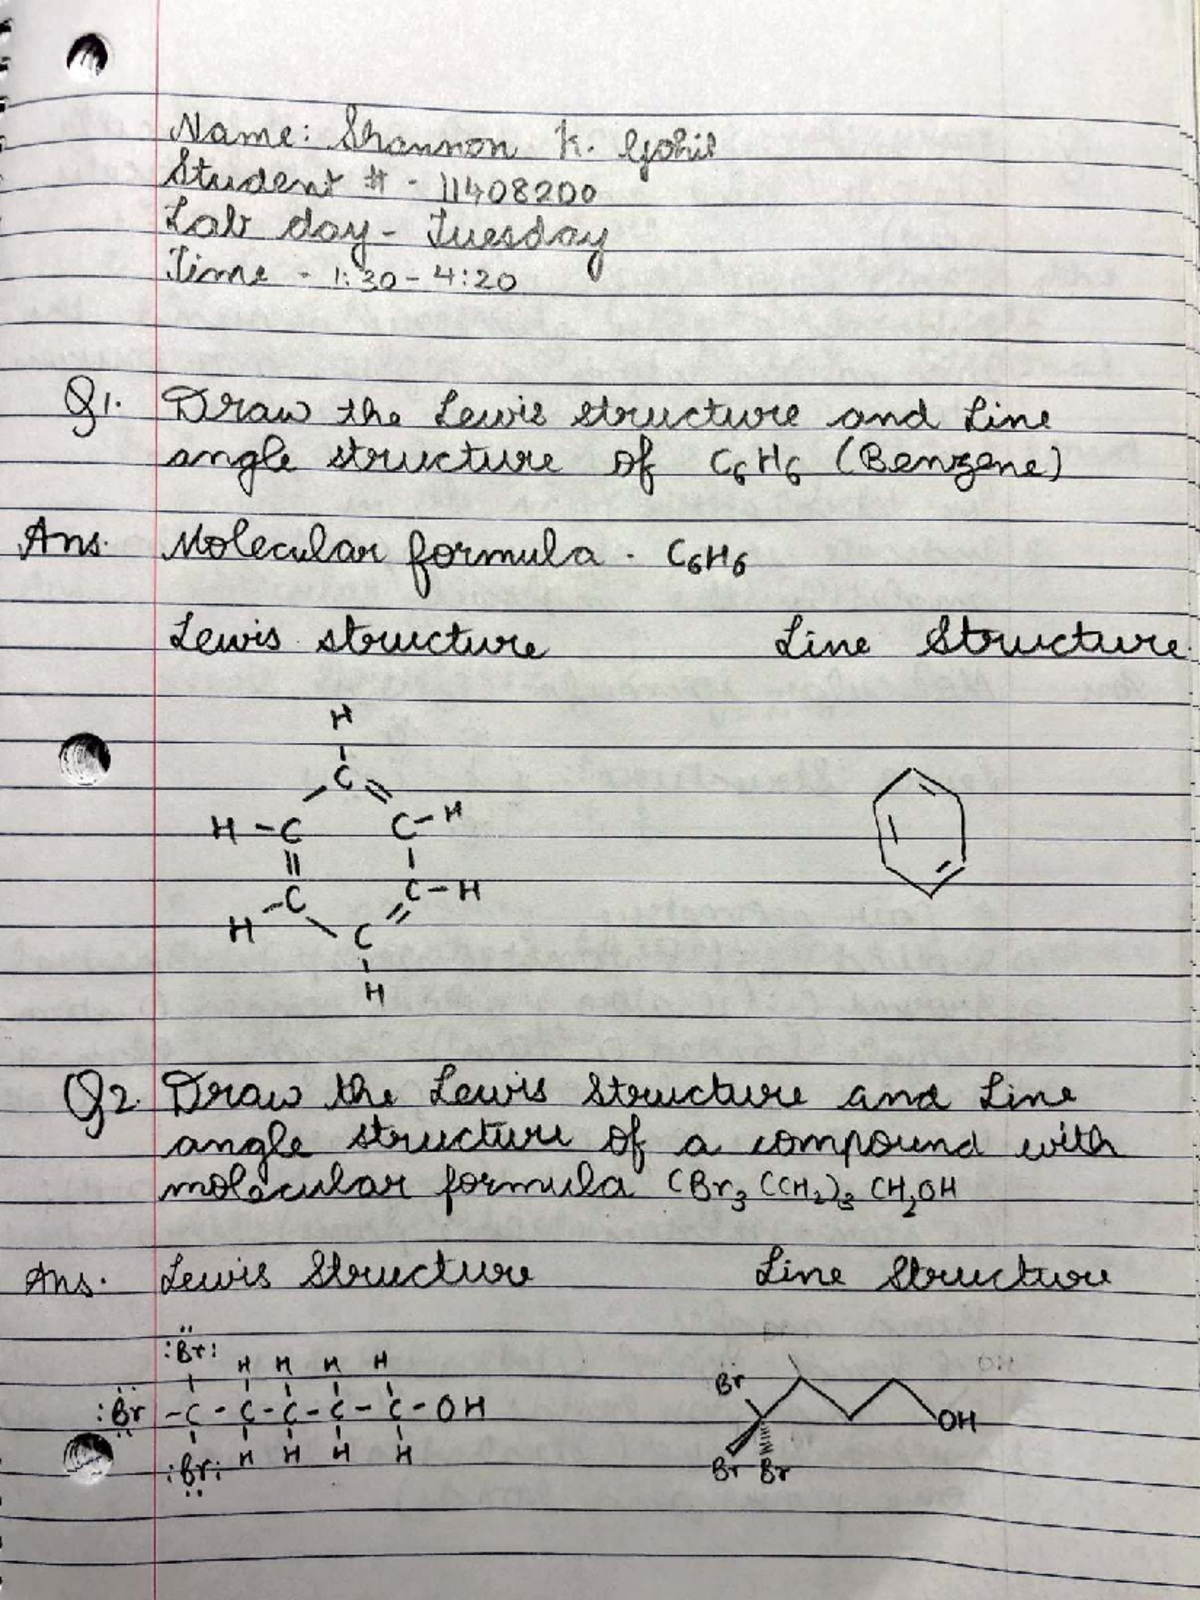 Name: Shannon K. Gohil
Student # - 11408200
Lab day - Tuesday
Time - 1:30 - 4:20
Q1. Draw the Lewis structure and Line
angle structure of C₆H₆ (Benzene)
Ans. Molecular formula - C₆H₆
Lewis structure Line Structure
H
C
H - C C - H
C C - H
H C
H
Q2. Draw the Lewis Structure and Line
angle structure of a compound with
molecular formula CBr₃(CH₂)₃CH₂OH
Ans. Lewis Structure Line Structure
:Br: H H H H Br
:Br - C - C - C - C - C - OH OH
:Br: H H H H Br Br